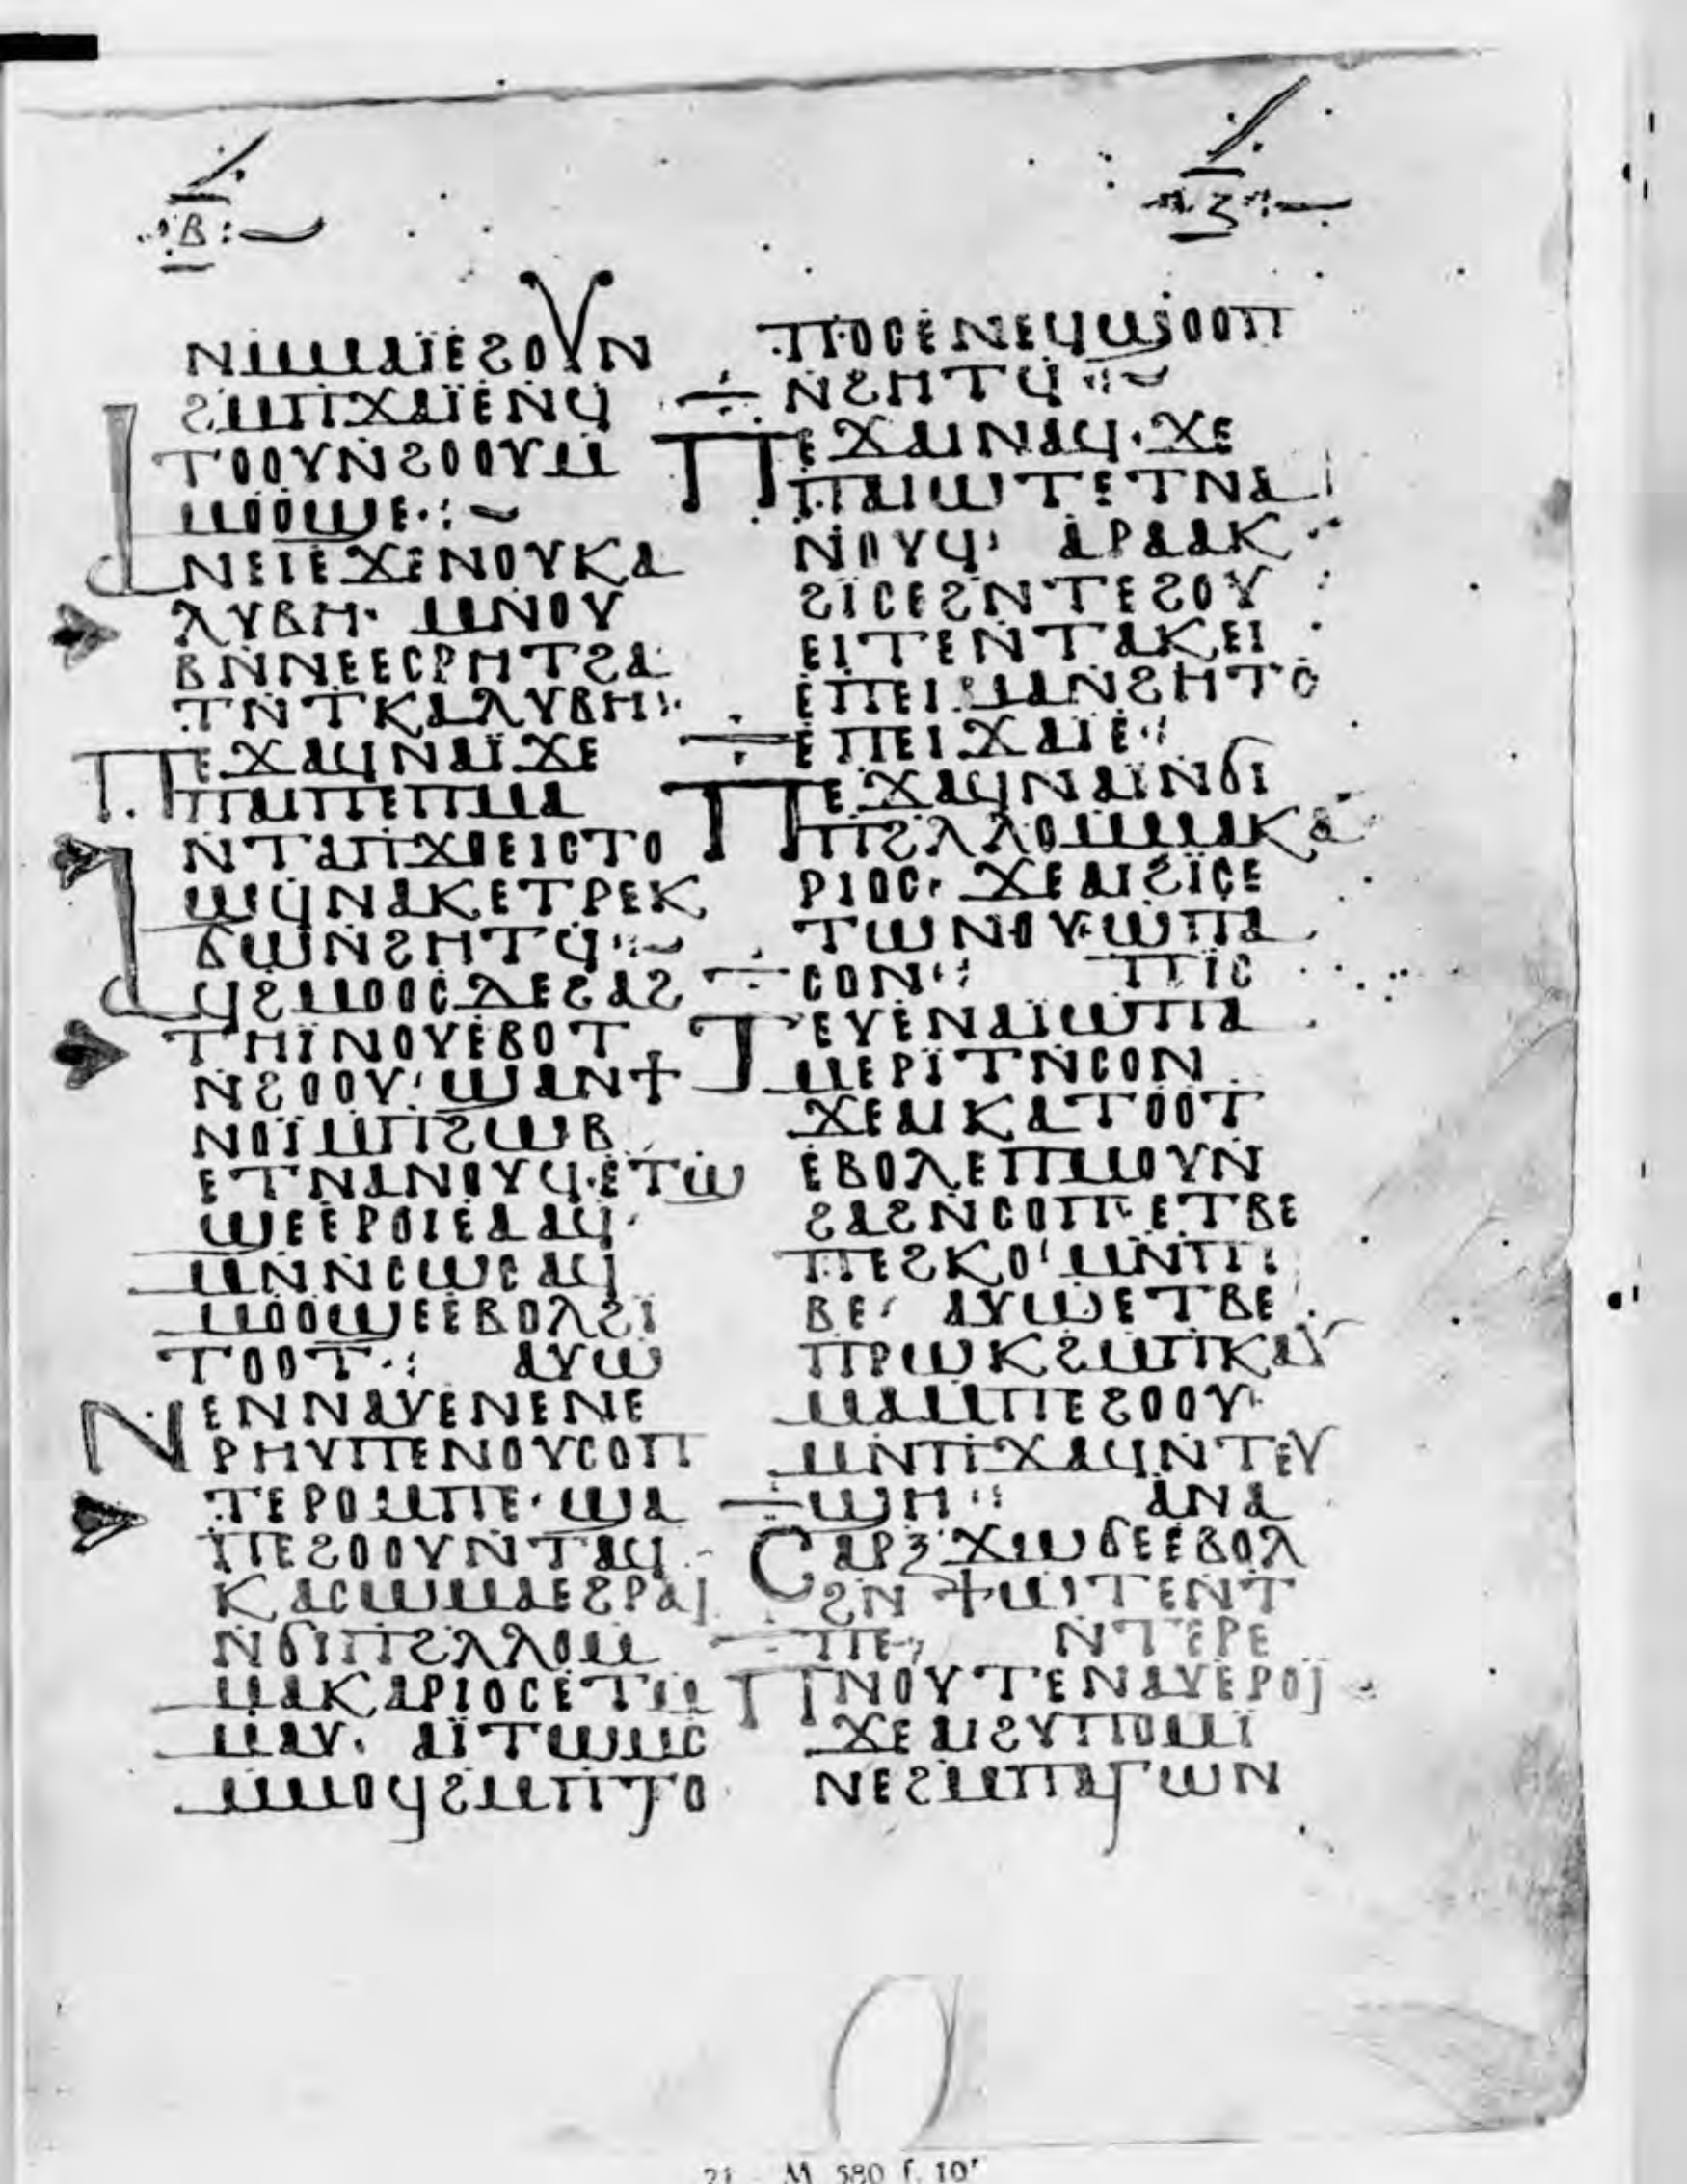 Ⲃ
ⲚⲘⲘⲀⲒ̈ⲈϨⲞⲨⲚ
ϨⲘⲠϪⲀⲒ̈ⲈⲚϤ
ⲦⲞⲞⲨⲚϨⲞⲞⲨⲘ
ⲘⲞⲞϢⲈ·:~
ⲚⲈⲒⲈϪⲈⲚⲞⲨⲔⲀ
ⲖⲨⲂⲎ· ⲘⲚⲞⲨ
ⲂⲚⲚⲈⲈⲤⲢⲎⲦϨⲀ
ⲦⲚⲦⲔⲀⲖⲨⲂⲎ:·
ⲠⲈϪⲀϤⲚⲀⲒ̈ϪⲈ
ⲠⲀⲒⲠⲈⲠⲘⲀ
ⲚⲦⲀⲠϪⲞⲈⲒⲤⲦⲞ
ϢϤⲚⲀⲔⲈⲦⲢⲈⲔ
ϬⲰⲚϨⲎⲦϤ··:~
ϤϨⲘⲞⲞⲤⲆⲈϨⲀϨ
ⲦⲎⲒ̈ⲚⲞⲨⲈⲂⲞⲦ
ⲚϨⲞⲞⲨ· ϢⲀⲚϮ
ⲚⲞⲒ̈ⲘⲠϨⲰⲂ
ⲈⲦⲚⲀⲚⲞⲨϤ·ⲈⲦⲰ̈
ϢⲈⲈⲢⲞⲒⲈⲀⲀϤ·
ⲘⲚⲚⲤⲰⲤⲀϤ
ⲘⲞⲞϢⲈⲈⲂⲞⲖϨⲒ̈
ⲦⲞⲞⲦ·: ⲀⲨⲰ
ⲚⲈⲚⲚⲀⲨⲈⲚⲈⲚⲈ
ⲢⲎⲨⲠⲈⲚⲞⲨⲤⲞⲠ
ⲦⲈⲢⲞⲘⲠⲈ· ϢⲀ
ⲠⲈϨⲞⲞⲨⲚⲦⲀϤ
ⲔⲀⲤⲰⲘⲀⲈϨⲢⲀⲒ
ⲚϬⲒⲠϨⲖⲖⲞⲘ
ⲘⲀⲔⲀⲢⲒⲞⲤⲈⲦⲘ
ⲘⲀⲨ· ⲀⲒ̈ⲦⲰⲘⲤ
ⲘⲘⲞϤϨⲘⲠⲦⲞ
Ⲍ
ⲠⲞⲤⲈⲚⲈϤϢⲞⲞⲠ
ⲚϨⲎⲦϤ··:~
ⲠⲈϪⲀⲒⲚⲀϤ·ϪⲈ
ⲠⲀⲒⲰⲦⲈⲦⲚⲀ
ⲚⲞⲨϤ· ⲀⲢⲀⲀⲔ
ϨⲒ̈ⲤⲈϨⲚⲦⲈϨⲞⲨ
ⲈⲒⲦⲈⲚⲦⲀⲔⲈⲒ
ⲈⲠⲈⲒⲘⲀⲚϨⲎⲦⲤ
ⲈⲠⲈⲒϪⲀⲒⲈ·:
ⲠⲈϪⲀϤⲚⲀⲒ̈ⲚϬⲒ
ⲠϨⲖⲖⲞⲘⲘⲀⲔⲀ
ⲢⲒⲞⲤ· ϪⲈⲀⲒϨⲒ̈ⲤⲈ
ⲦⲰⲚⲞⲨ·ⲰⲠⲀ
ⲤⲞⲚ·: ⲠⲒ̈Ⲥ
ⲦⲈⲨⲈⲚⲀⲒ̈ⲰⲠⲀ
ⲘⲈⲢⲒ̈ⲦⲚⲤⲞⲚ
ϪⲈⲀⲒⲔⲀⲦⲞⲞⲦ
ⲈⲂⲞⲖⲈⲠⲘⲞⲨⲚ
ϨⲀϨⲚⲤⲞⲠ· ⲈⲦⲂⲈ
ⲠⲈϨⲔⲞ· ⲘⲚⲠⲒ
ⲂⲈ· ⲀⲨⲰⲈⲦⲂⲈ
ⲠⲢⲰⲔϨⲘⲠⲔⲀⲨ
ⲘⲀⲘⲠⲈϨⲞⲞⲨ·
ⲘⲚⲠϪⲀϤⲚⲦⲈⲨ
ϢⲎ·: ⲀⲚⲀ
ⲤⲀⲢⲜϪⲰϬⲈⲈⲂⲞⲖ
ϨⲚϮⲘⲒⲦⲈⲚⲦ
ⲠⲈ· ⲚⲦⲈⲢⲈ
ⲠⲚⲞⲨⲦⲈⲚⲀⲨⲈⲢⲞⲒ
ϪⲈⲀⲒϨⲨⲠⲞⲘⲒ̈
ⲚⲈϨⲘⲠⲀⲅⲰⲚ
21 M 580 f. 10ʳ